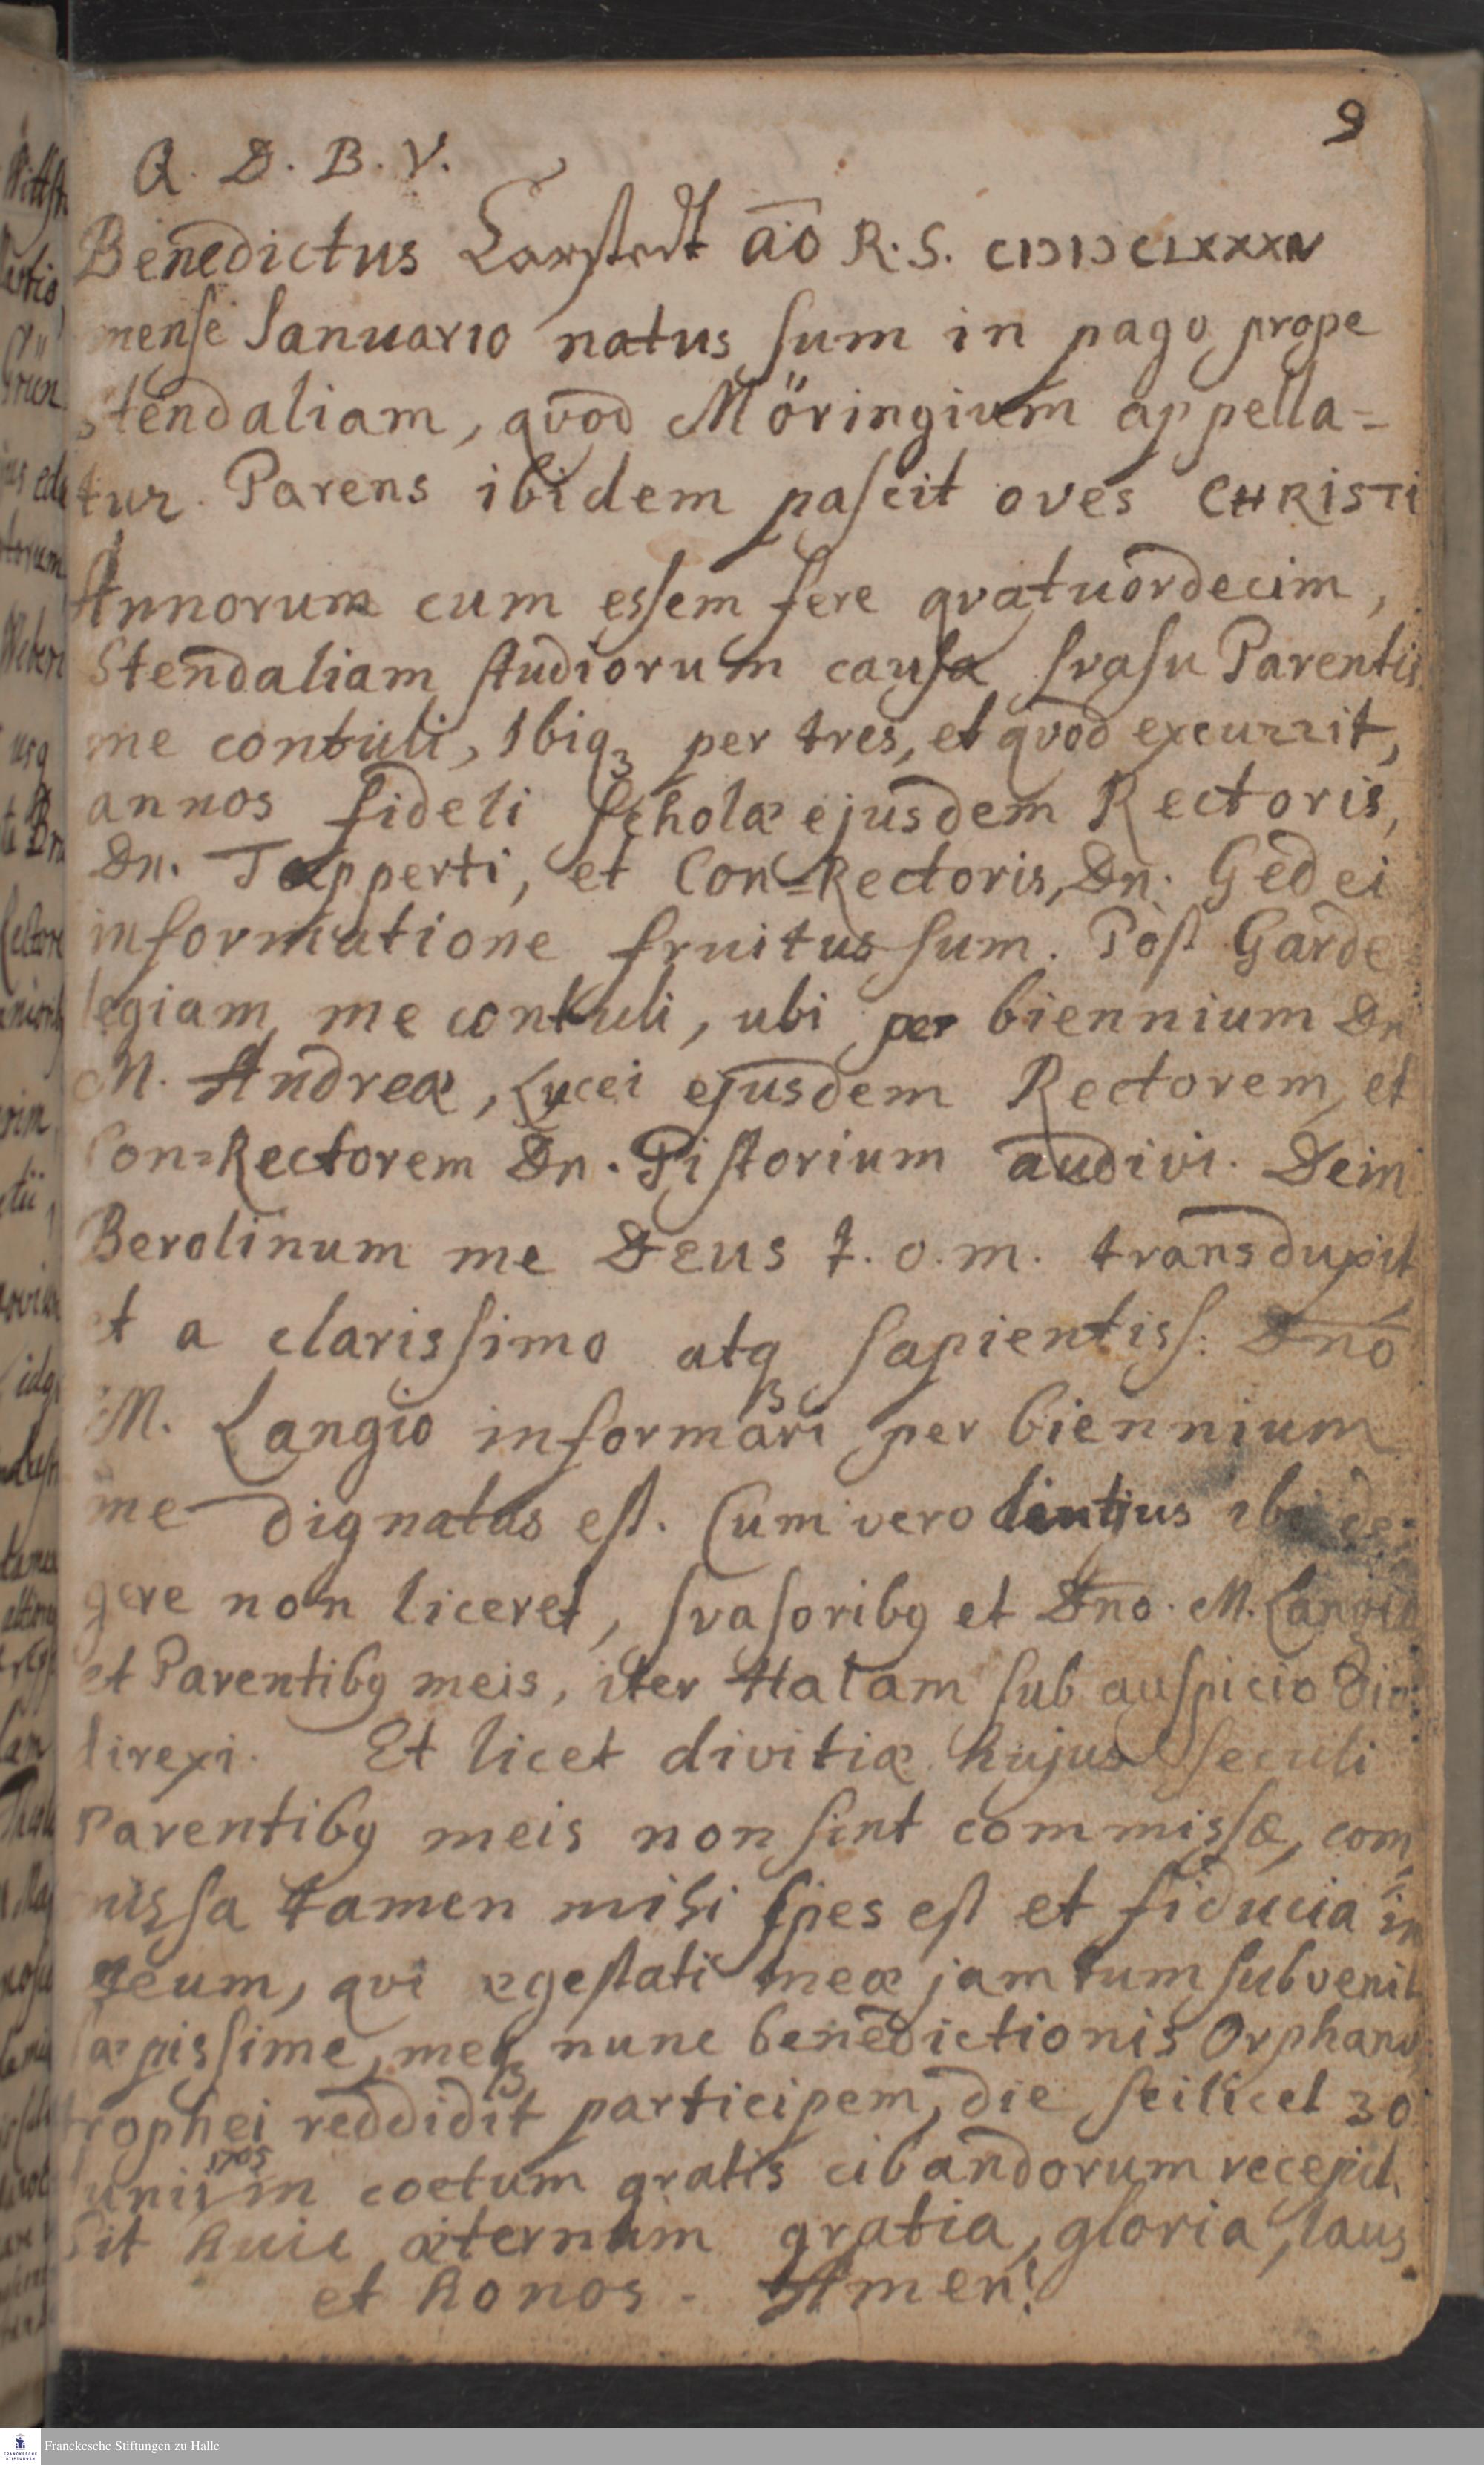 9
Q. D. B. V.
Benedictus Carstedt aõ R. S. CIƆIƆCLXXXIV
mense Januario natus sum in pago prope
Stendaliam, qvod Möringium appella=
tur. Parens ibidem pascit oves CHRISTI
Annorum cum essem fere qvatuordecim,
Stendaliam studiorum causa svasu Parentis
me contuli, Ibiq₃ per tres, et qvod excurrit,
annos fideli scholæ ejusdem Rectoris,
Dn. Tapperti, et Con=Rectoris, Dn. Gedei
informatione fruitus sum. Post Garde
legiam me contuli, ubi per biennium Dn
M. Andreæ, Lycei ejusdem Rectorem, et
Con=Rectorem Dn. Pistorium audivi. Dein
Berolinum me Deus t. o. m. transduxit
et a clarissimo atq₃ sapientiss: Dnō
M. Langio informari per biennium
me dignatus est. Cum vero diutius ibi de=
gere non liceret, svasoribq et Dno. M. Langio
et Parentibq meis, iter Halam sub auspicio Dio
direxi. Et licet divitiæ hujus seculi
Parentibq meis non sint commissæ, com=
missa tamen mihi spes est et fiducia in
Deum, qvi egestati meæ jam tum subvenit
sæpissime, meq₃ nunc benedictionis Orphano
trophei reddidit participem, die scilicet 30
Junii 1705 in coetum gratis cibandorum recepit.
Sit huic æternum gratia, gloria, laus
et honos. Amen!
Franckesche Stiftungen zu Halle